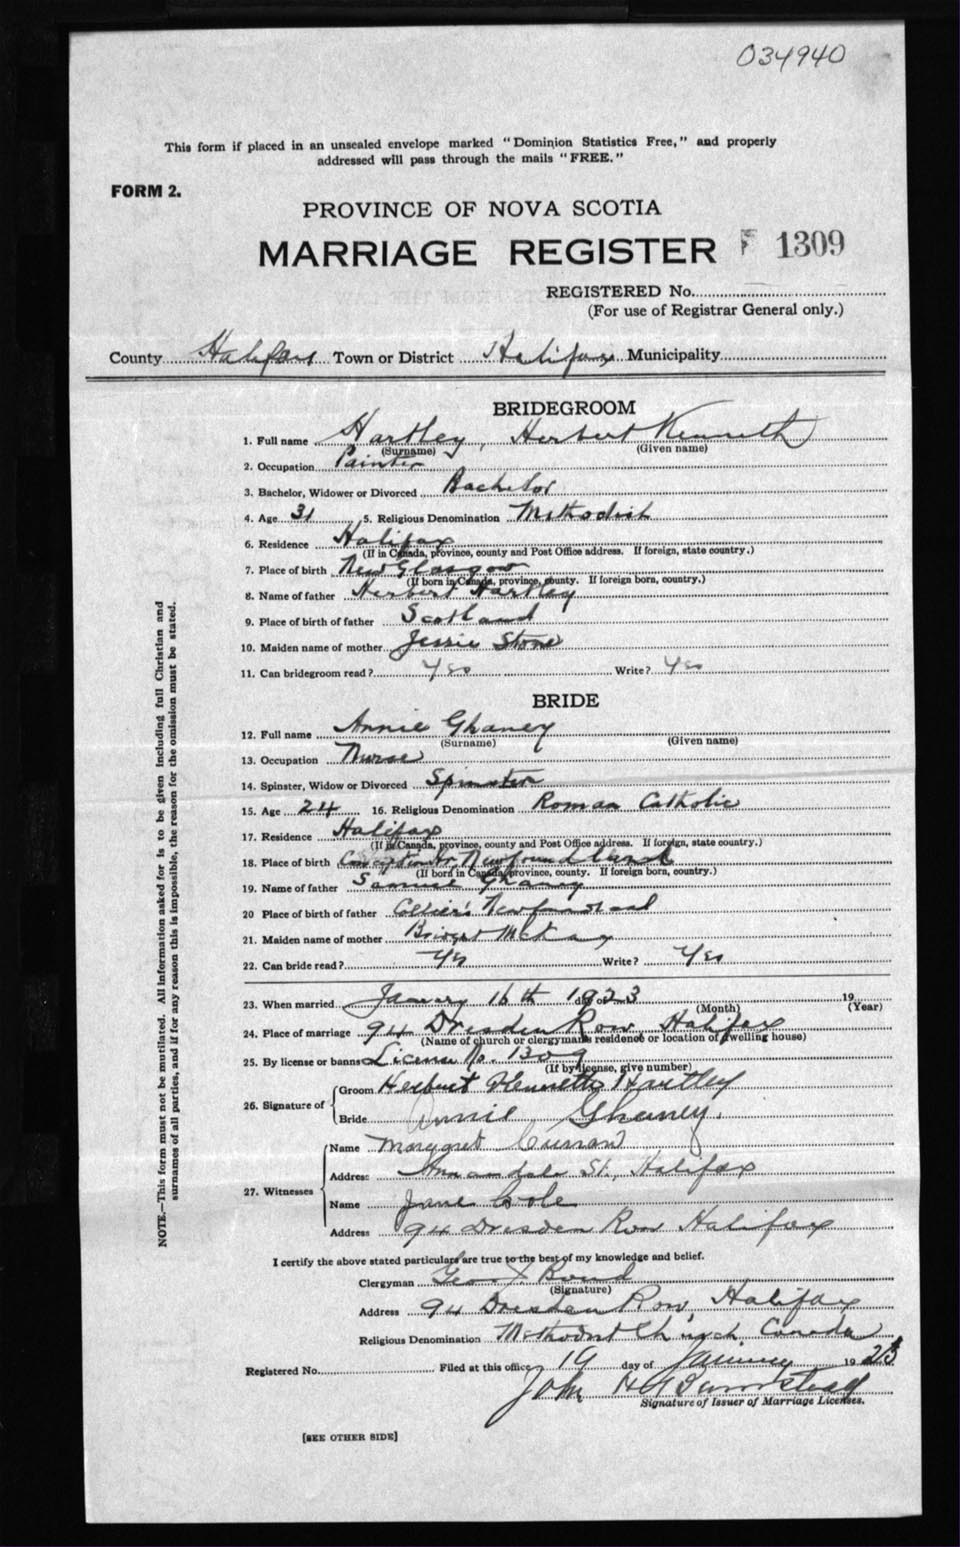 034940
This form if placed in an unsealed envelope marked "Dominion Statistics Free," and properly
addressed will pass through the mails "FREE."
FORM 2.
PROVINCE OF NOVA SCOTIA
MARRIAGE REGISTER 1309
REGISTERED No.
(For use of Registrar General only.)
County Halifax Town or District Halifax Municipality
BRIDEGROOM
1. Full name Hartley, Herbert Kenneth
(Surname) (Given name)
2. Occupation Painter
3. Bachelor, Widower or Divorced Bachelor
4. Age 31 5. Religious Denomination Methodist
6. Residence Halifax
(If in Canada, province, county and Post Office address. If foreign, state country.)
7. Place of birth New Glasgow
(If born in Canada, province, county. If foreign born, country.)
8. Name of father Herbert Hartley
9. Place of birth of father Scotland
10. Maiden name of mother Jessie Stone
11. Can bridegroom read? Yes Write? Yes
BRIDE
12. Full name Annie Ghaney
(Surname) (Given name)
13. Occupation Nurse
14. Spinster, Widow or Divorced Spinster
15. Age 24 16. Religious Denomination Roman Catholic
17. Residence Halifax
(If in Canada, province, county and Post Office address. If foreign, state country.)
18. Place of birth Conception Hr. Newfoundland
(If born in Canada, province, county. If foreign born, country.)
19. Name of father Samuel Ghaney
20 Place of birth of father Collier's Newfoundland
21. Maiden name of mother Bridget McKay
22. Can bride read? Yes Write? Yes
23. When married January 16th 1923 day of 19
(Month) (Year)
24. Place of marriage 94 Dresden Row, Halifax
(Name of church or clergyman's residence or location of dwelling house)
25. By license or banns License No. 1309
(If by license, give number)
26. Signature of
Groom Herbert Kenneth Hartley
Bride Annie Ghaney.
27. Witnesses
Name Margaret Curran
Address Annandale St., Halifax
Name Jane Cole
Address 94 Dresden Row Halifax
I certify the above stated particulars are true to the best of my knowledge and belief.
Clergyman Geo J. Bond
(Signature)
Address 94 Dresden Row, Halifax
Religious Denomination Methodist Church, Canada
Registered No. Filed at this office 19 day of January 1923
John H Barnstead
Signature of Issuer of Marriage Licenses.
[SEE OTHER SIDE]
NOTE.—This form must not be mutilated. All information asked for is to be given including full Christian and
surnames of all parties, and if for any reason this is impossible, the reason for the omission must be stated.